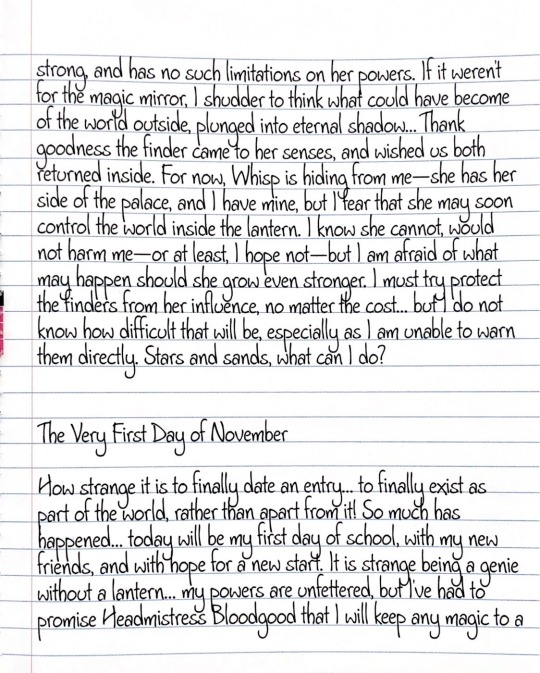 strong, and has no such limitations on her powers. If it weren't
for the magic mirror, I shudder to think what could have become
of the world outside, plunged into eternal shadow... Thank
goodness the finder came to her senses, and wished us both
returned inside. For now, Whisp is hiding from me—she has her
side of the palace, and I have mine, but I fear that she may soon
control the world inside the lantern. I know she cannot, would
not harm me—or at least, I hope not—but I am afraid of what
may happen should she grow even stronger. I must try protect
the finders from her influence, no matter the cost... but I do not
know how difficult that will be, especially as I am unable to warn
them directly. Stars and sands, what can I do?
The Very First Day of November
How strange it is to finally date an entry... to finally exist as
part of the world, rather than apart from it! So much has
happened... today will be my first day of school, with my new
friends, and with hope for a new start. It is strange being a genie
without a lantern... my powers are unfettered, but I've had to
promise Headmistress Bloodgood that I will keep any magic to a